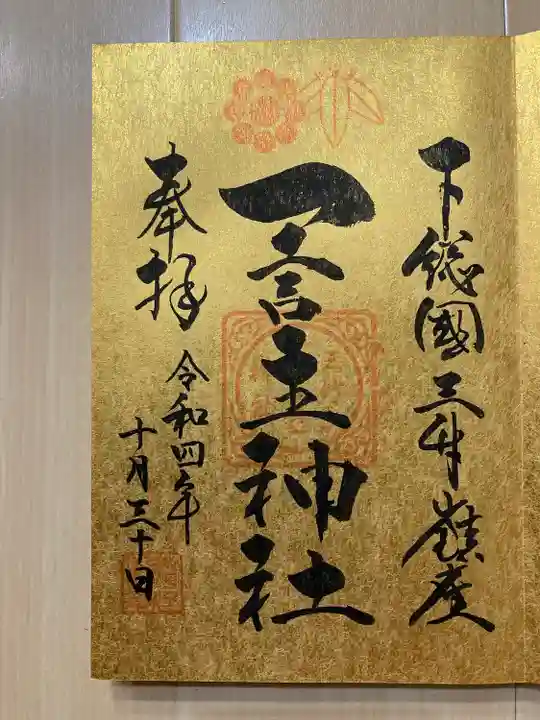 下総國三竹嶺座
一言主神社
奉拝
令和四年
十月三十日